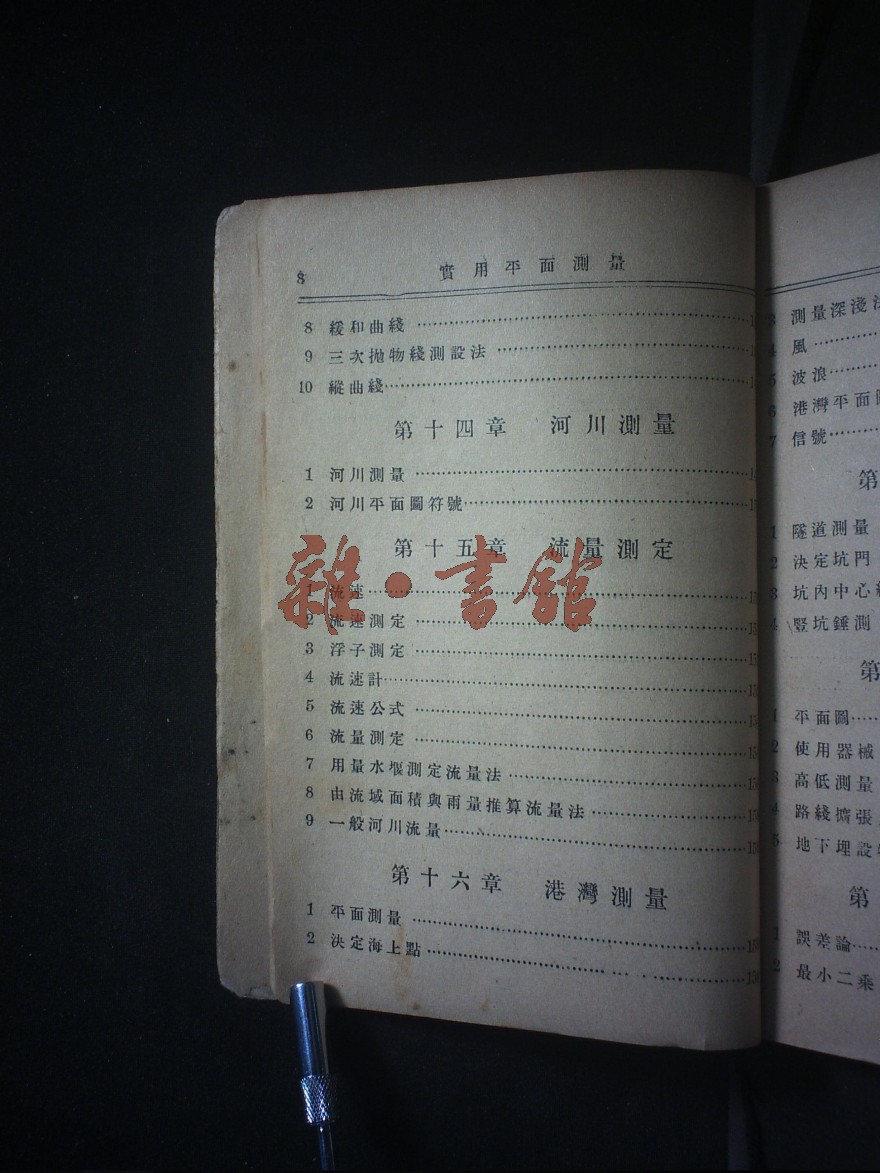 8 實用平面測量
8 緩和曲綫
9 三次拋物綫測設法
10 縱曲綫
第十四章 河川測量
1 河川測量
2 河川平面圖符號
第十五章 流量測定
1 流速
2 流速測定
3 浮子測定
4 流速計
5 流速公式
6 流量測定
7 用量水堰測定流量法
8 由流域面積與雨量推算流量法
9 一般河川流量
第十六章 港灣測量
1 平面測量
2 決定海上點
雜·書館
3 測量深淺
4 風
5 波浪
6 港灣平面
7 信號
第
1 隧道測量
2 決定坑門
3 坑內中心
4 豎坑錘測
第
1 平面圖
2 使用器械
3 高低測量
4 路綫擴張
5 地下埋設
第
1 誤差論
2 最小二乘